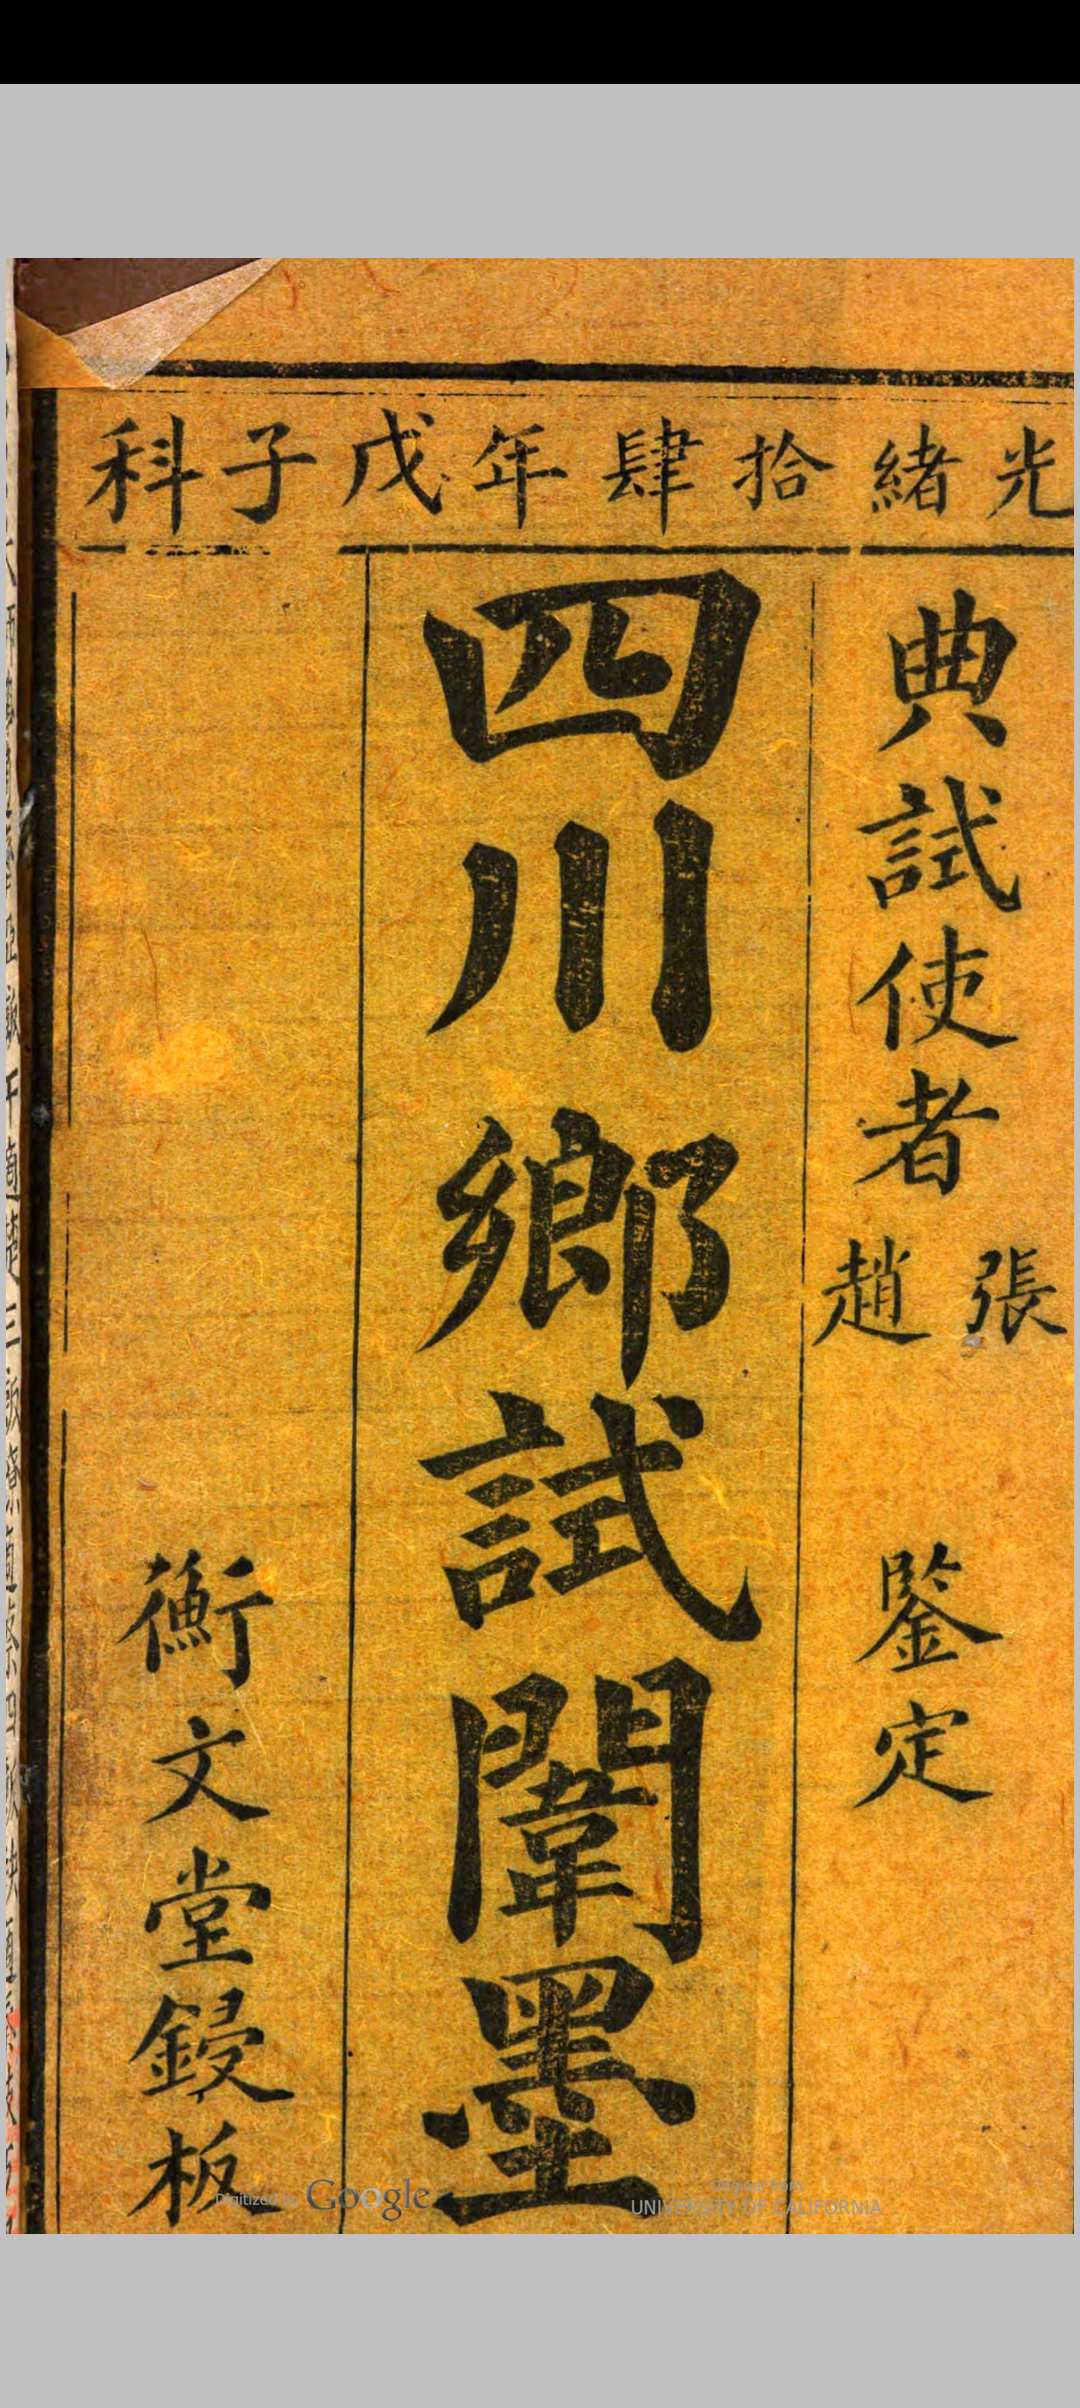 光緒拾肆年戊子科
典試使者
張
趙
鑒定
四川鄉試闈墨
衡文堂鋟板
Digitized by Google
Original from
UNIVERSITY OF CALIFORNIA